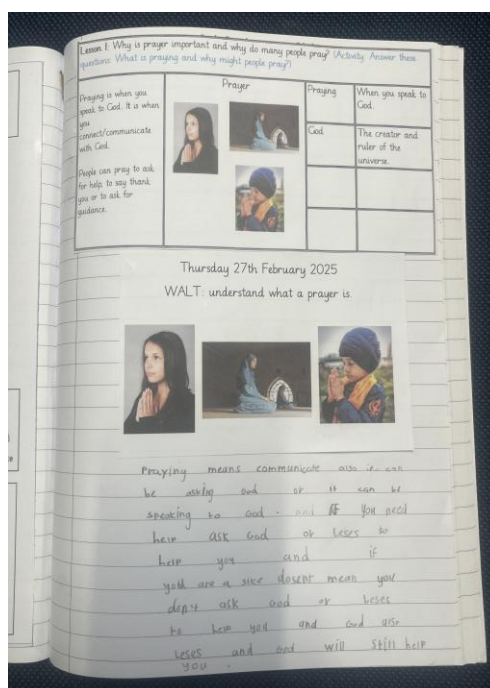 Lesson 1: Why is prayer important and why do many people pray? (Activity: Answer these
questions: What is praying and why might people pray?)
Praying is when you
speak to God. It is when
you
connect/communicate
with God.
People can pray to ask
for help, to say thank
you or to ask for
guidance.
Prayer
Praying
When you speak to
God.
God
The creator and
ruler of the
universe.
Thursday 27th February 2025
WALT: understand what a prayer is.
Praying means communicate also it can
be asking God or it can be
speaking to God. and If you need
help ask God or Leses to
help you and if
you are a sike dosent mean you
don't ask God or Leses
to help you and God also
Leses and God will still help
you.